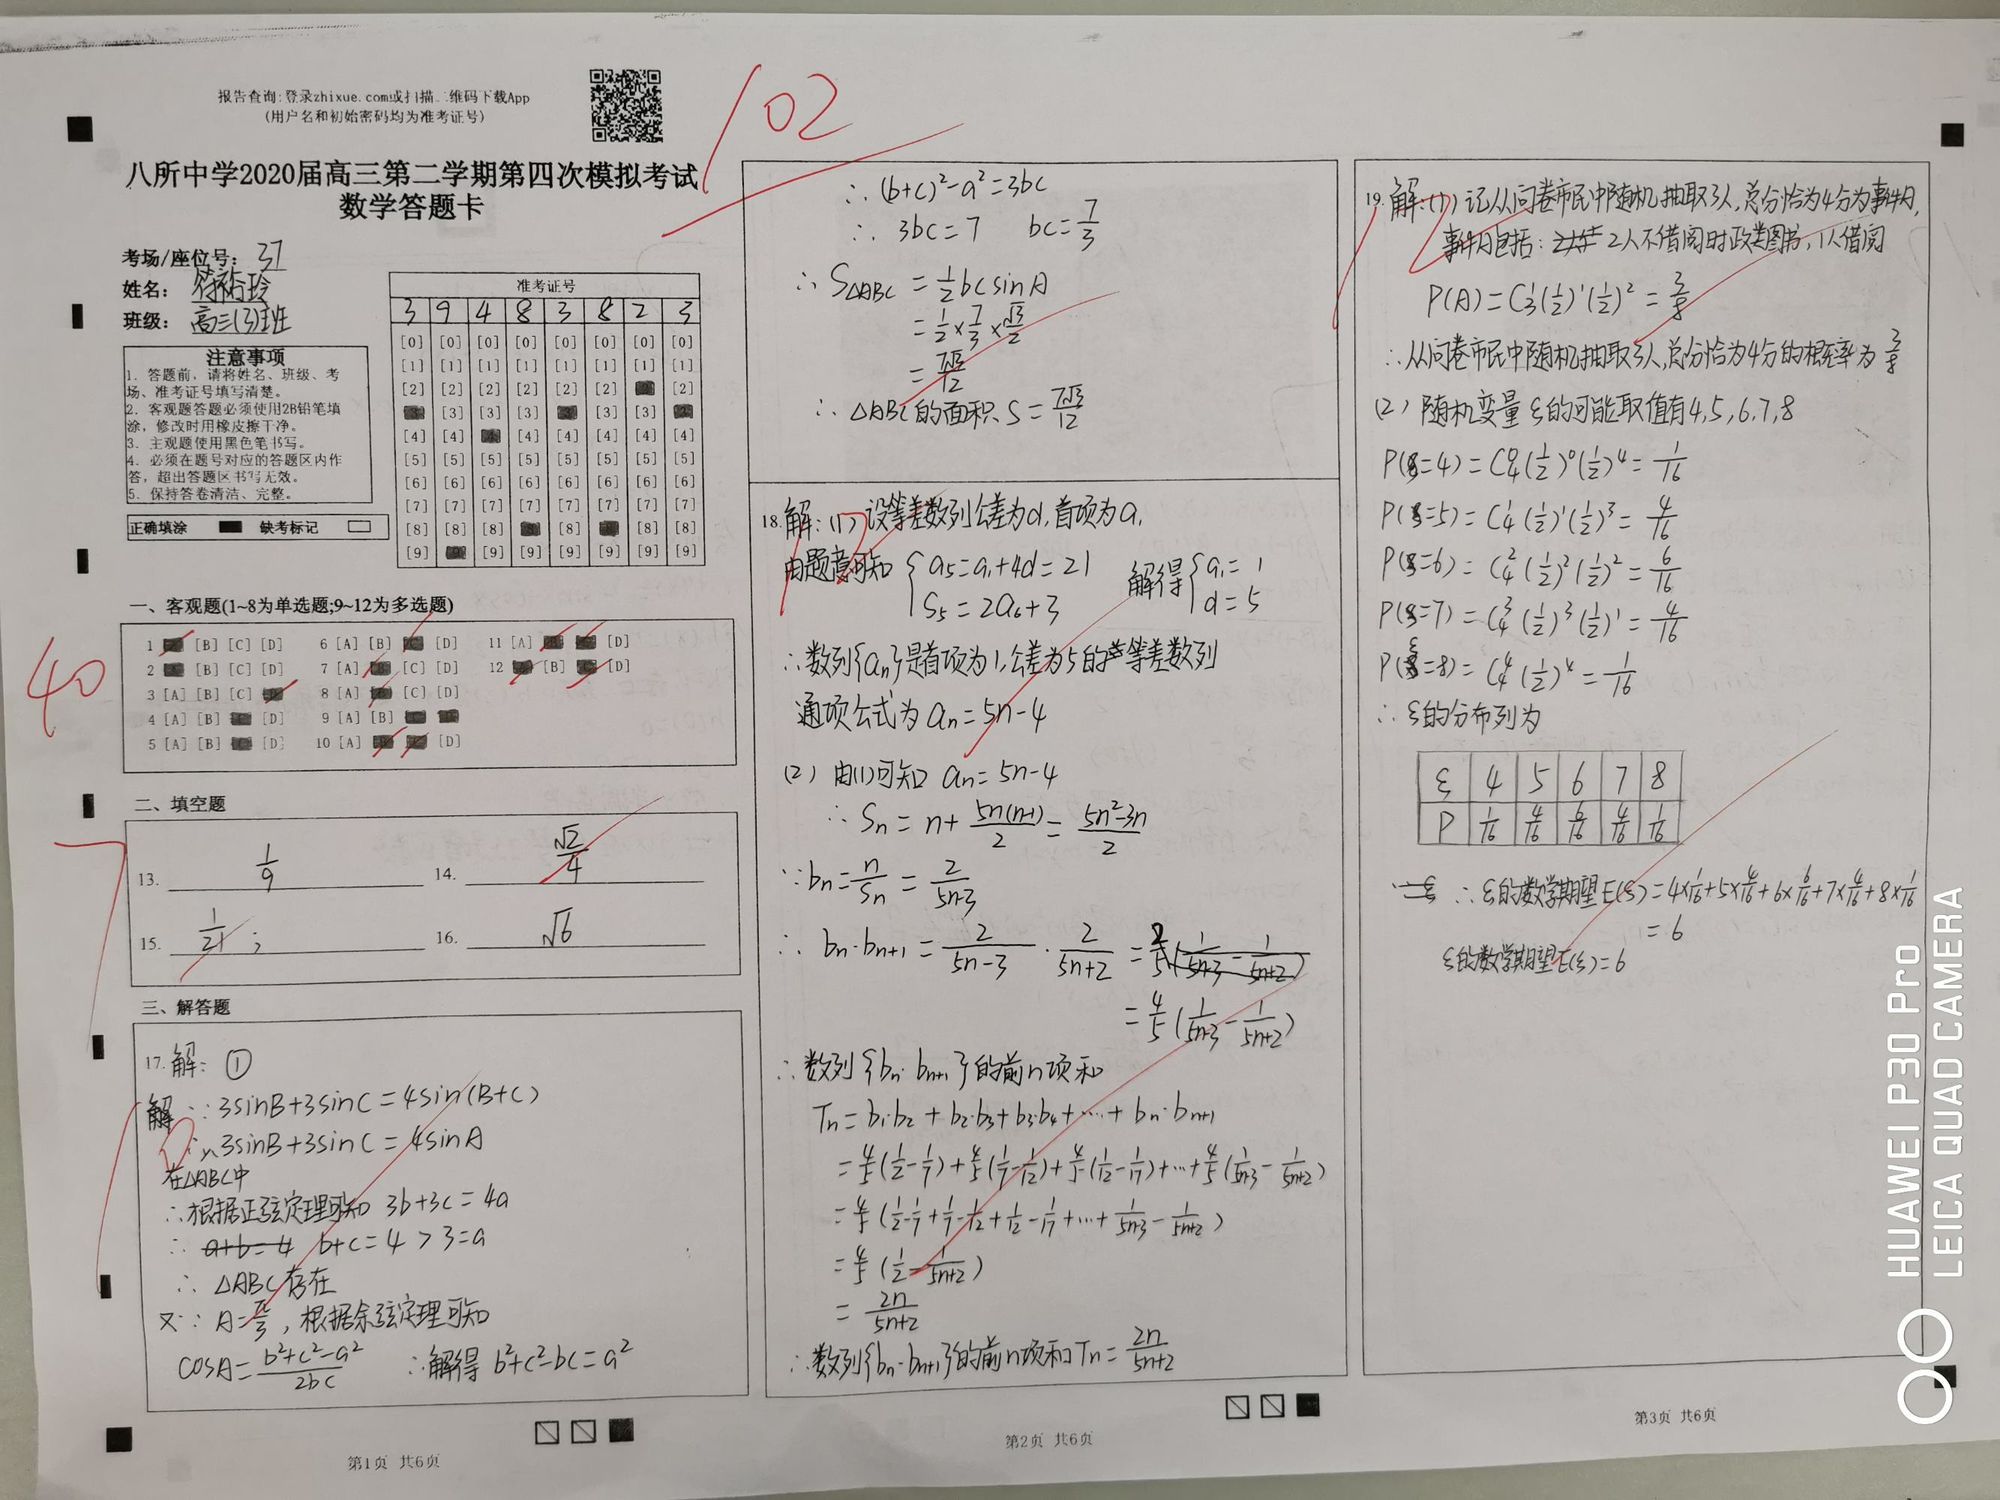 报告查询:登录zhixue.com或扫描二维码下载App
(用户名和初始密码均为准考证号)
八所中学2020届高三第二学期第四次模拟考试
数学答题卡
102
考场/座位号: 37
姓名: 符裕玲
班级: 高三(3)班
准考证号
3 9 4 8 3 8 2 3
[0] [0] [0] [0] [0] [0] [0] [0]
[1] [1] [1] [1] [1] [1] [1] [1]
[2] [2] [2] [2] [2] [2] [2]
[3] [3] [3] [3] [3]
[4] [4] [4] [4] [4] [4] [4]
[5] [5] [5] [5] [5] [5] [5] [5]
[6] [6] [6] [6] [6] [6] [6] [6]
[7] [7] [7] [7] [7] [7] [7] [7]
[8] [8] [8] [8] [8] [8]
[9] [9] [9] [9] [9] [9] [9]
注意事项
1. 答题前,请将姓名、班级、考
场、准考证号填写清楚。
2. 客观题答题必须使用2B铅笔填
涂,修改时用橡皮擦干净。
3. 主观题使用黑色笔书写。
4. 必须在题号对应的答题区内作
答,超出答题区书写无效。
5. 保持答卷清洁、完整。
正确填涂 缺考标记
一、客观题(1~8为单选题;9~12为多选题)
40
1 [B] [C] [D] 6 [A] [B] [D] 11 [A] [D]
2 [B] [C] [D] 7 [A] [C] [D] 12 [B] [D]
3 [A] [B] [C] 8 [A] [C] [D]
4 [A] [B] [D] 9 [A] [B]
5 [A] [B] [D] 10 [A] [D]
二、填空题
13. 1/9 14. √2/4
15. 1/21 ; 16. √6
三、解答题
17. 解: ①
解 ∵3sinB+3sinC=4sin(B+C)
∴3sinB+3sinC=4sinA
在△ABC中
∴根据正弦定理可知 3b+3c=4a
∴ a+b=4 b+c=4>3=a
∴ △ABC存在
又∵ A=π/3, 根据余弦定理可知
cosA=(b²+c²-a²)/2bc ∴解得 b²+c²-bc=a²
第1页 共6页
∴ (b+c)²-a²=3bc
∴ 3bc=7 bc=7/3
∴ S△ABC =1/2 bcsinA
=1/2×7/3×√3/2
=7√3/12
∴ △ABC的面积S=7√3/12
18. 解:(1) 设等差数列公差为d,首项为a₁
由题意可知 { a₅=a₁+4d=21 解得 { a₁=1
S₅=2a₆+3 d=5
∴数列{aₙ}是首项为1,公差为5的等差数列
通项公式为aₙ=5n-4
(2) 由(1)可知 aₙ=5n-4
∴ Sₙ=n+5n(n-1)/2=(5n²-3n)/2
∵bₙ=n/Sₙ=2/(5n-3)
∴ bₙ·bₙ₊₁=2/(5n-3)·2/(5n+2)=2/5(1/(5n-3)-1/(5n+2))
=4/5(1/(5n-3)-1/(5n+2))
∴数列{bₙ·bₙ₊₁}的前n项和
Tₙ=b₁b₂+b₂b₃+b₃b₄+…+bₙ·bₙ₊₁
=4/5(1/2-1/7)+4/5(1/7-1/12)+4/5(1/12-1/17)+…+4/5(1/(5n-3)-1/(5n+2))
=4/5(1/2-1/7+1/7-1/12+1/12-1/17+…+1/(5n-3)-1/(5n+2))
=4/5(1/2-1/(5n+2))
=2n/(5n+2)
∴数列{bₙ·bₙ₊₁}的前n项和Tₙ=2n/(5n+2)
第2页 共6页
19. 解:(1) 记从问卷市民中随机抽取3人,总分恰为4分为事件A,
事件A包括: 2人不借阅时政类图书,1人借阅
P(A)=C₃¹(1/2)¹(1/2)²=3/8
∴从问卷市民中随机抽取3人,总分恰为4分的概率为3/8
(2) 随机变量ξ的可能取值有4,5,6,7,8
P(ξ=4)=C₄⁰(1/2)⁰(1/2)⁴=1/16
P(ξ=5)=C₄¹(1/2)¹(1/2)³=4/16
P(ξ=6)=C₄²(1/2)²(1/2)²=6/16
P(ξ=7)=C₄³(1/2)³(1/2)¹=4/16
P(ξ=8)=C₄⁴(1/2)⁴=1/16
∴ ξ的分布列为
ξ 4 5 6 7 8
P 1/16 4/16 6/16 4/16 1/16
∴ ξ的数学期望E(ξ)=4×1/16+5×4/16+6×6/16+7×4/16+8×1/16
=6
ξ的数学期望E(ξ)=6
第3页 共6页
HUAWEI P30 Pro
LEICA QUAD CAMERA